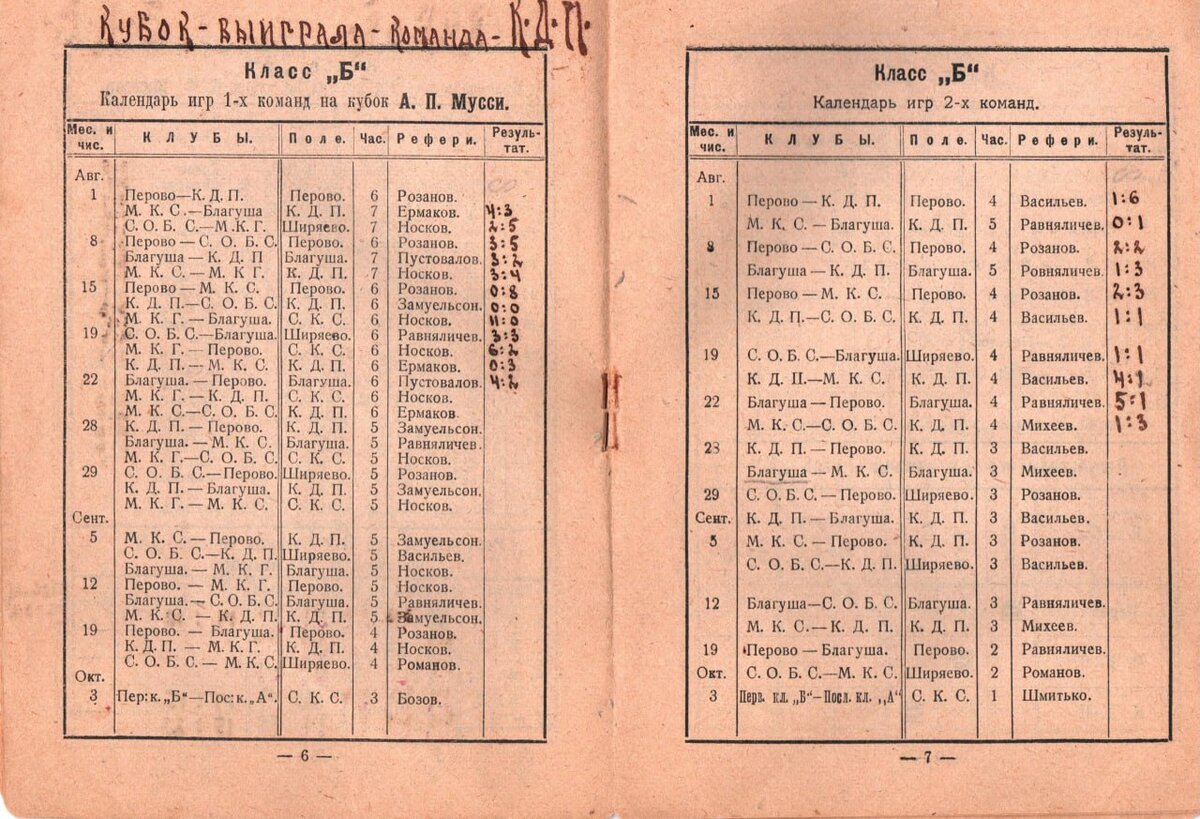 КУБОК-ВЫИГРАЛА-КОМАНДА-К.Д.П.
Класс „Б“
Календарь игр 1-х команд на кубок А. П. Мусси.
Мес. и чис. КЛУБЫ. Поле. Час. Рефери. Результат.
Авг.
1 Перово—К. Д. П. Перово. 6 Розанов.
М. К. С.—Благуша К. Д. П. 7 Ермаков. 4:3
С. О. Б. С.—М. К. Г. Ширяево. 7 Носков. 2:5
8 Перово—С. О. Б. С. Перово. 6 Розанов. 3:5
Благуша—К. Д. П Благуша. 7 Пустовалов. 3:2
М. К. С.—М. К Г. К. Д. П. 7 Носков. 3:4
15 Перово—М. К. С. Перово. 6 Розанов. 0:8
К. Д. П.—С. О. Б. С. К. Д. П. 6 Замуельсон. 0:0
М. К. Г.—Благуша. С. К. С. 6 Носков. 11:0
19 С. О. Б. С.—Благуша. Ширяево. 6 Равняличев. 3:3
М. К. Г.—Перово. С. К. С. 6 Носков. 6:2
К. Д. П.—М. К. С. К. Д. П. 6 Ермаков. 0:3
22 Благуша.—Перово. Благуша. 6 Пустовалов. 4:2
М. К. Г.—К. Д. П. С. К. С. 6 Носков.
М. К. С.—С. О. Б. С. К. Д. П. 6 Ермаков
28 К. Д. П.—Перово. К. Д. П. 5 Замуельсон.
Благуша.—М. К. С. Благуша. 5 Равняличев.
М. К. Г.—С. О. Б. С. С. К. С. 5 Носков.
29 С. О. Б. С.—Перово. Ширяево. 5 Розанов.
К. Д. П.—Благуша. К. Д. П. 5 Замуельсон.
М. К. Г.—М. К. С. С. К. С. 5 Носков.
Сент.
5 М. К. С.—Перово. К. Д. П. 5 Замуельсон.
С. О. Б. С.—К. Д. П. Ширяево. 5 Васильев.
Благуша.—М. К. Г. Благуша. 5 Носков.
12 Перово.—М. К. Г. Перово. 5 Носков.
Благуша.—С. О. Б. С. Благуша. 5 Равняличев.
М. К. С.—К. Д. П. К. Д. П. 5 Замуельсон.
19 Перово.—Благуша. Перово. 4 Розанов.
К. Д. П.—М. К. Г. К. Д. П. 4 Носков.
С. О. Б. С.—М. К. С. Ширяево. 4 Романов.
Окт.
3 Пер: к. „Б“—Пос: к. „А“. С. К. С. 3 Бозов.
— 6 —
Класс „Б“
Календарь игр 2-х команд.
Мес. и чис. КЛУБЫ. Поле. Час. Рефери. Результат.
Авг.
1 Перово—К. Д. П. Перово. 4 Васильев. 1:6
М. К. С.—Благуша. К. Д. П. 5 Равняличев. 0:1
8 Перово—С. О. Б. С. Перово. 4 Розанов. 2:2
Благуша—К. Д. П. Благуша. 5 Ровняличев. 1:3
15 Перово—М. К. С. Перово. 4 Розанов. 2:3
К. Д. П.—С. О. Б. С. К. Д. П. 4 Васильев. 1:1
19 С. О. Б. С.—Благуша. Ширяево. 4 Равняличев. 1:1
К. Д. П.—М. К. С. К. Д. П. 4 Васильев. 4:1
22 Благуша—Перово. Благуша. 4 Равняличев. 5:1
М. К. С.—С. О. Б. С. К. Д. П. 4 Михеев. 1:3
23 К. Д. П.—Перово. К. Д. П. 3 Васильев.
Благуша—М. К. С. Благуша. 3 Михеев.
29 С. О. Б. С.—Перово. Ширяево. 3 Розанов.
Сент. К. Д. П.—Благуша. К. Д. П. 3 Васильев.
5 М. К. С.—Перово. К. Д. П. 3 Розанов.
С. О. Б. С.—К. Д. П. Ширяево. 3 Васильев.
12 Благуша—С. О. Б. С. Благуша. 3 Равняличев.
М. К. С.—К. Д. П. К. Д. П. 3 Михеев.
19 Перово—Благуша. Перово. 2 Равняличев.
Окт. С. О. Б. С.—М. К. С. Ширяево. 2 Романов.
3 Перв. кл. „Б“—Посл. кл. „А“ С. К. С. 1 Шмитько.
— 7 —